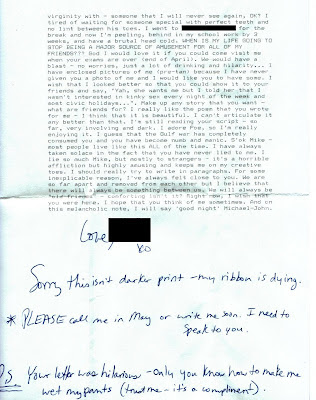 virginity with - someone that I will never see again, OK? I
tired of waiting for someone cool with perfect teeth and
no lint between his toes. I went to for
the break and now I'm peeling, behind in my school work by 3
weeks, and have a brutal head cold. WHEN IS MY LIFE GOING TO
STOP BEING A MAJOR SOURCE OF AMUSEMENT FOR ALL OF MY
FRIENDS??? God I would love it if you could come visit me
when your exams are over (end of April). We would have a
blast - no worries, just a lot of drinking and hilarity... I
have enclosed pictures of me (pre-tan) because I have never
given you a photo of me and I would like you to have some. I
wish that I looked better so that you could show it to your
friends and say, "Yah, she wants me but I told her that I
wasn't interested in kinky sex every night of the week and
most civic holidays...". Make up any story that you want -
what are friends for? I really like the poem that you wrote
for me - I think that it is beautiful. I can't articulate it
any better than that. I'm still reading your script - so
far, very involving and dark. I adore Poe, so I'm really
enjoying it. I guess that the Gulf war has completely
consumed you and you have become numb and manic. S'ok Mike -
most people live like this ALL of the time. I have always
taken solace in the fact that you have never lied to me. I
lie so much Mike, but mostly to strangers - it's a horrible
affliction but highly amusing and keeps me on my creative
toes. I should really try to write in paragraphs. For some
inexplicable reason, I've always felt close to you. We are
so far apart and removed from each other but I believe that
there will always be something between us. We will always be
"old friends" - comforting isn't it? Right now, I wish that
you were here. I hope that you think of me sometimes. And on
this melancholic note, I will say 'good night' Michael-John.
Love,
XO
Sorry this isn't darker print - my ribbon is dying.
* PLEASE call me in May or write me soon. I need to
speak to you.
P.S. Your letter was hilarious - only you know how to make me
wet my pants (trust me - it's a compliment).